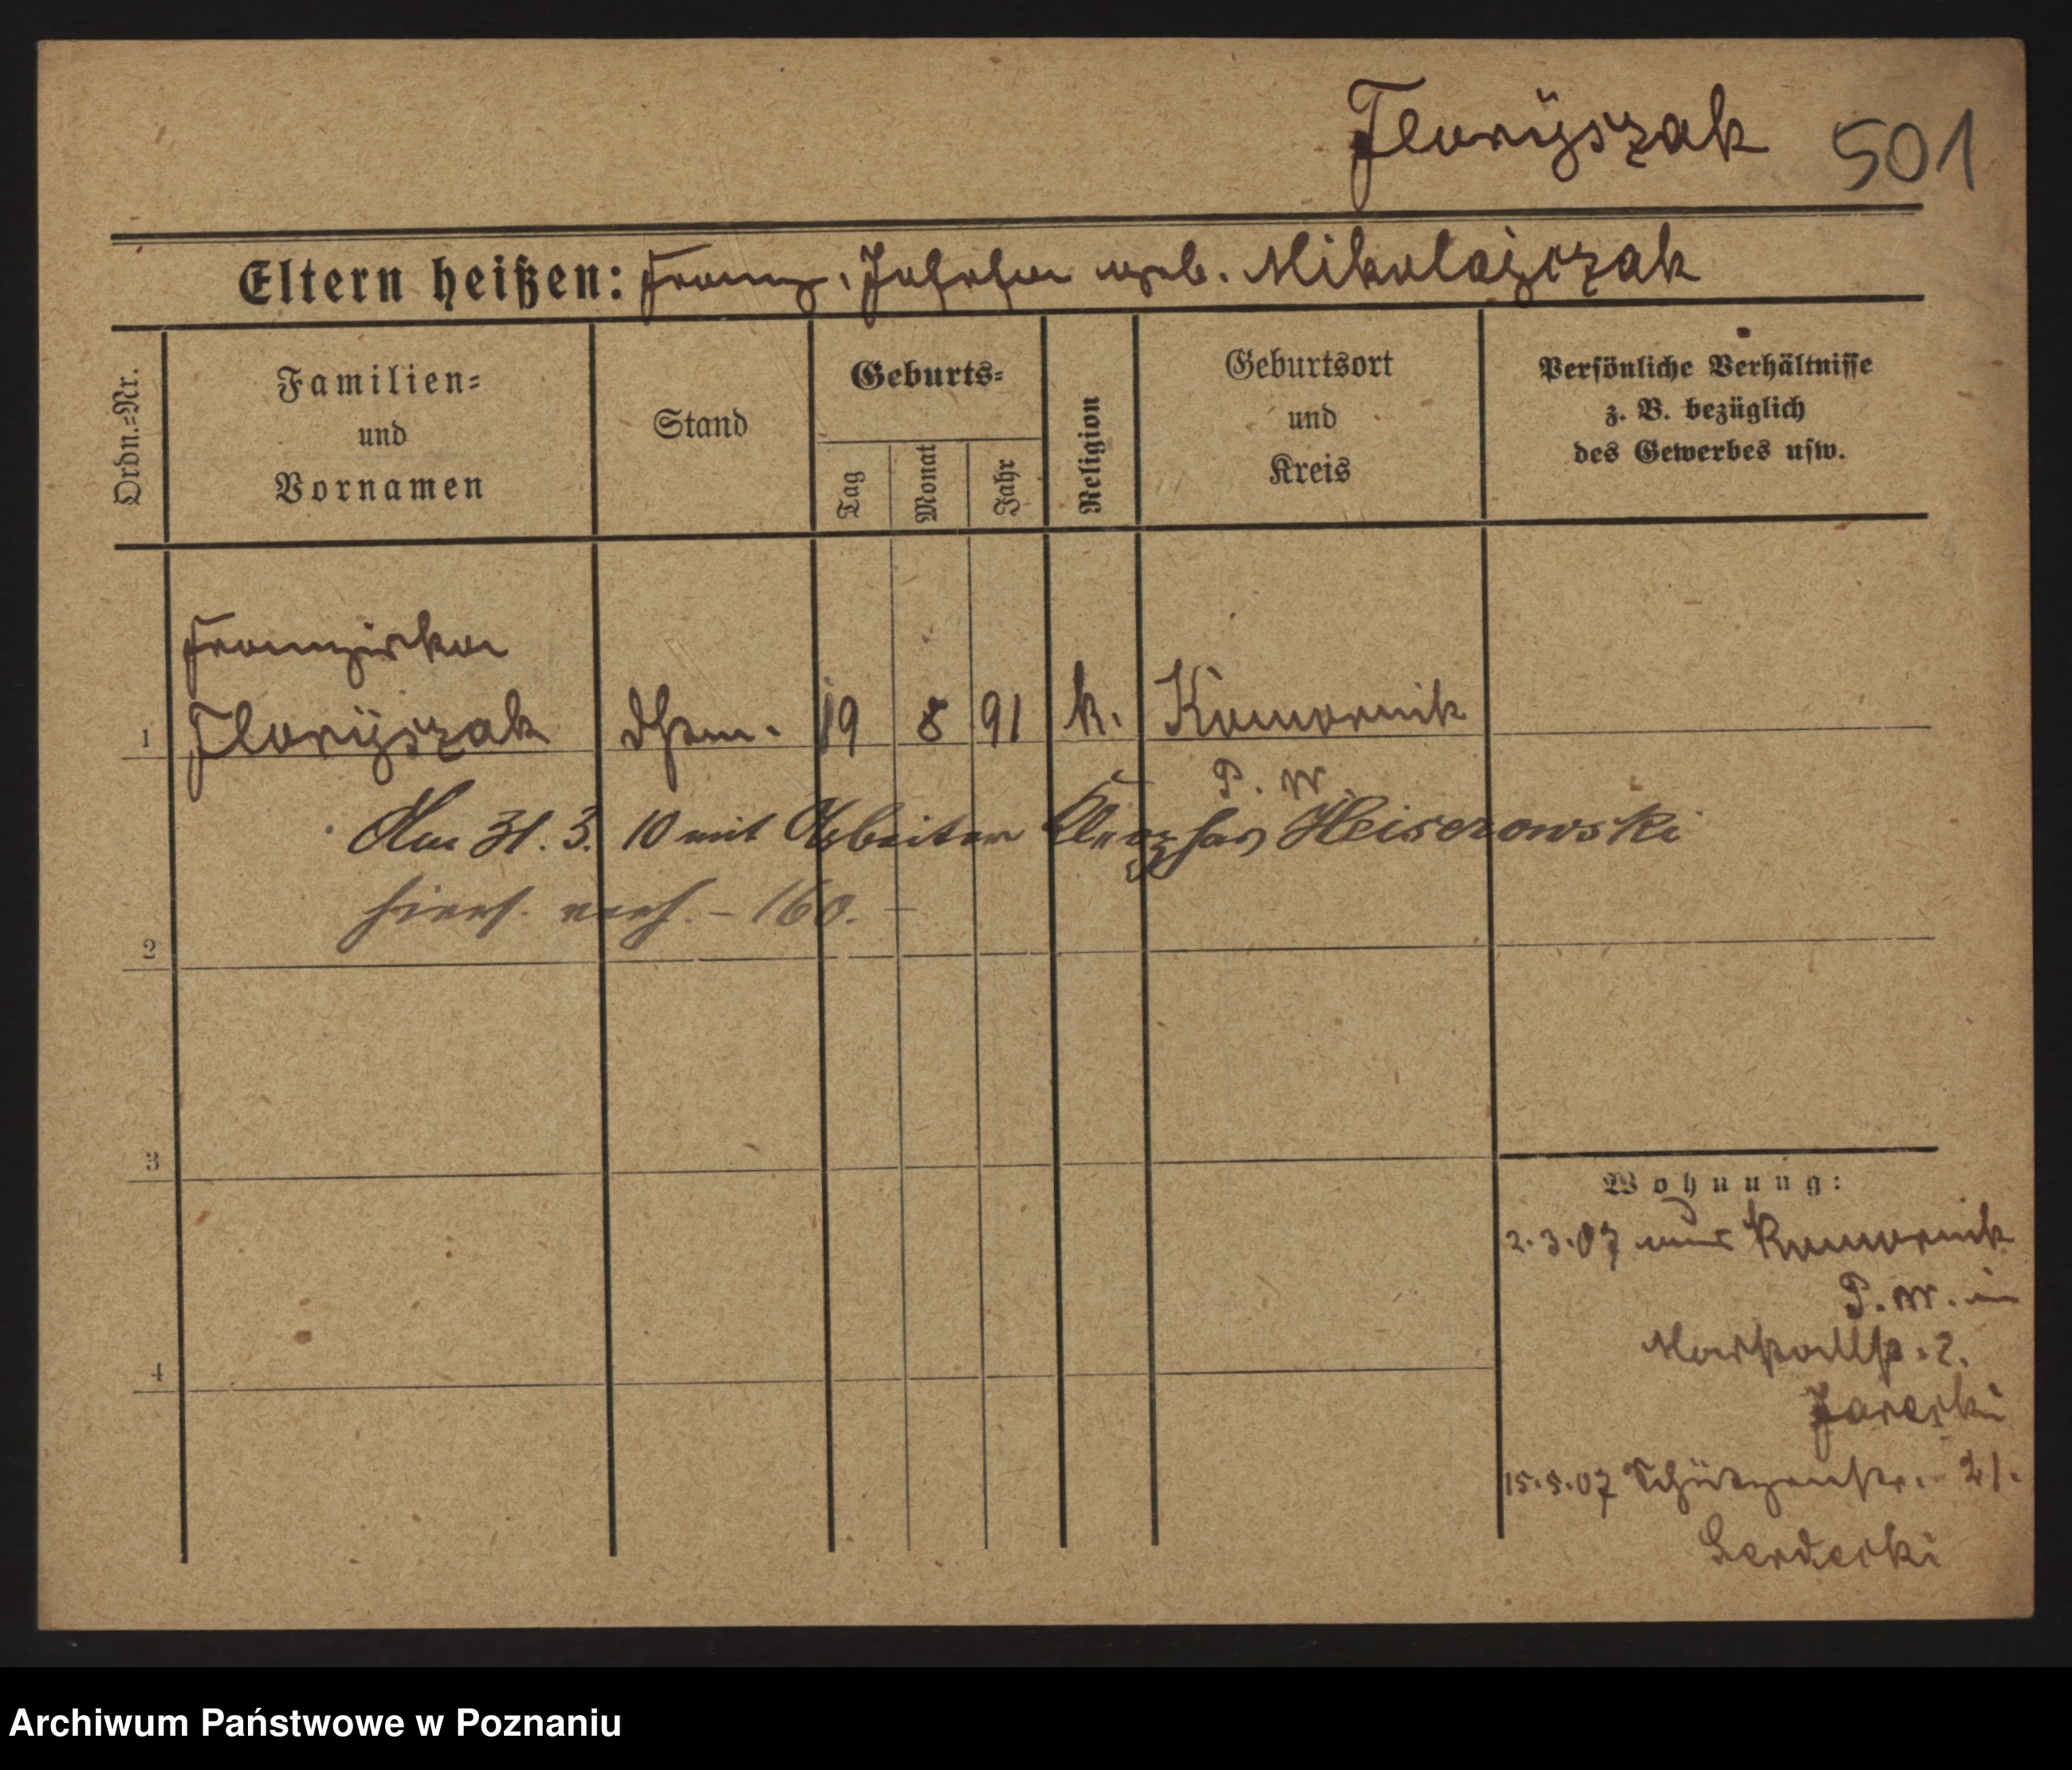 Florÿszak 501
Eltern heißen: Franz, Josefa geb. Mikolajczak
Ordn.=Nr.
Familien=
und
Vornamen
Stand
Geburts=
Tag
Monat
Jahr
Religion
Geburtsort
und
Kreis
Persönliche Verhältnisse
z. B. bezüglich
des Gewerbes usw.
Franziska
1 Florÿszak 19 8 91 k. Komornik
P. W.
Am 31. 3. 10 mit Arbeiter Heiserowski
hiers. verh. – 160. –
2
3
4
Wohnung:
2.3.07 aus Komornik
P. W. in
2.
Jarecki
15.5.07 Schützenstr. 21.
Serdecki
Archiwum Państwowe w Poznaniu